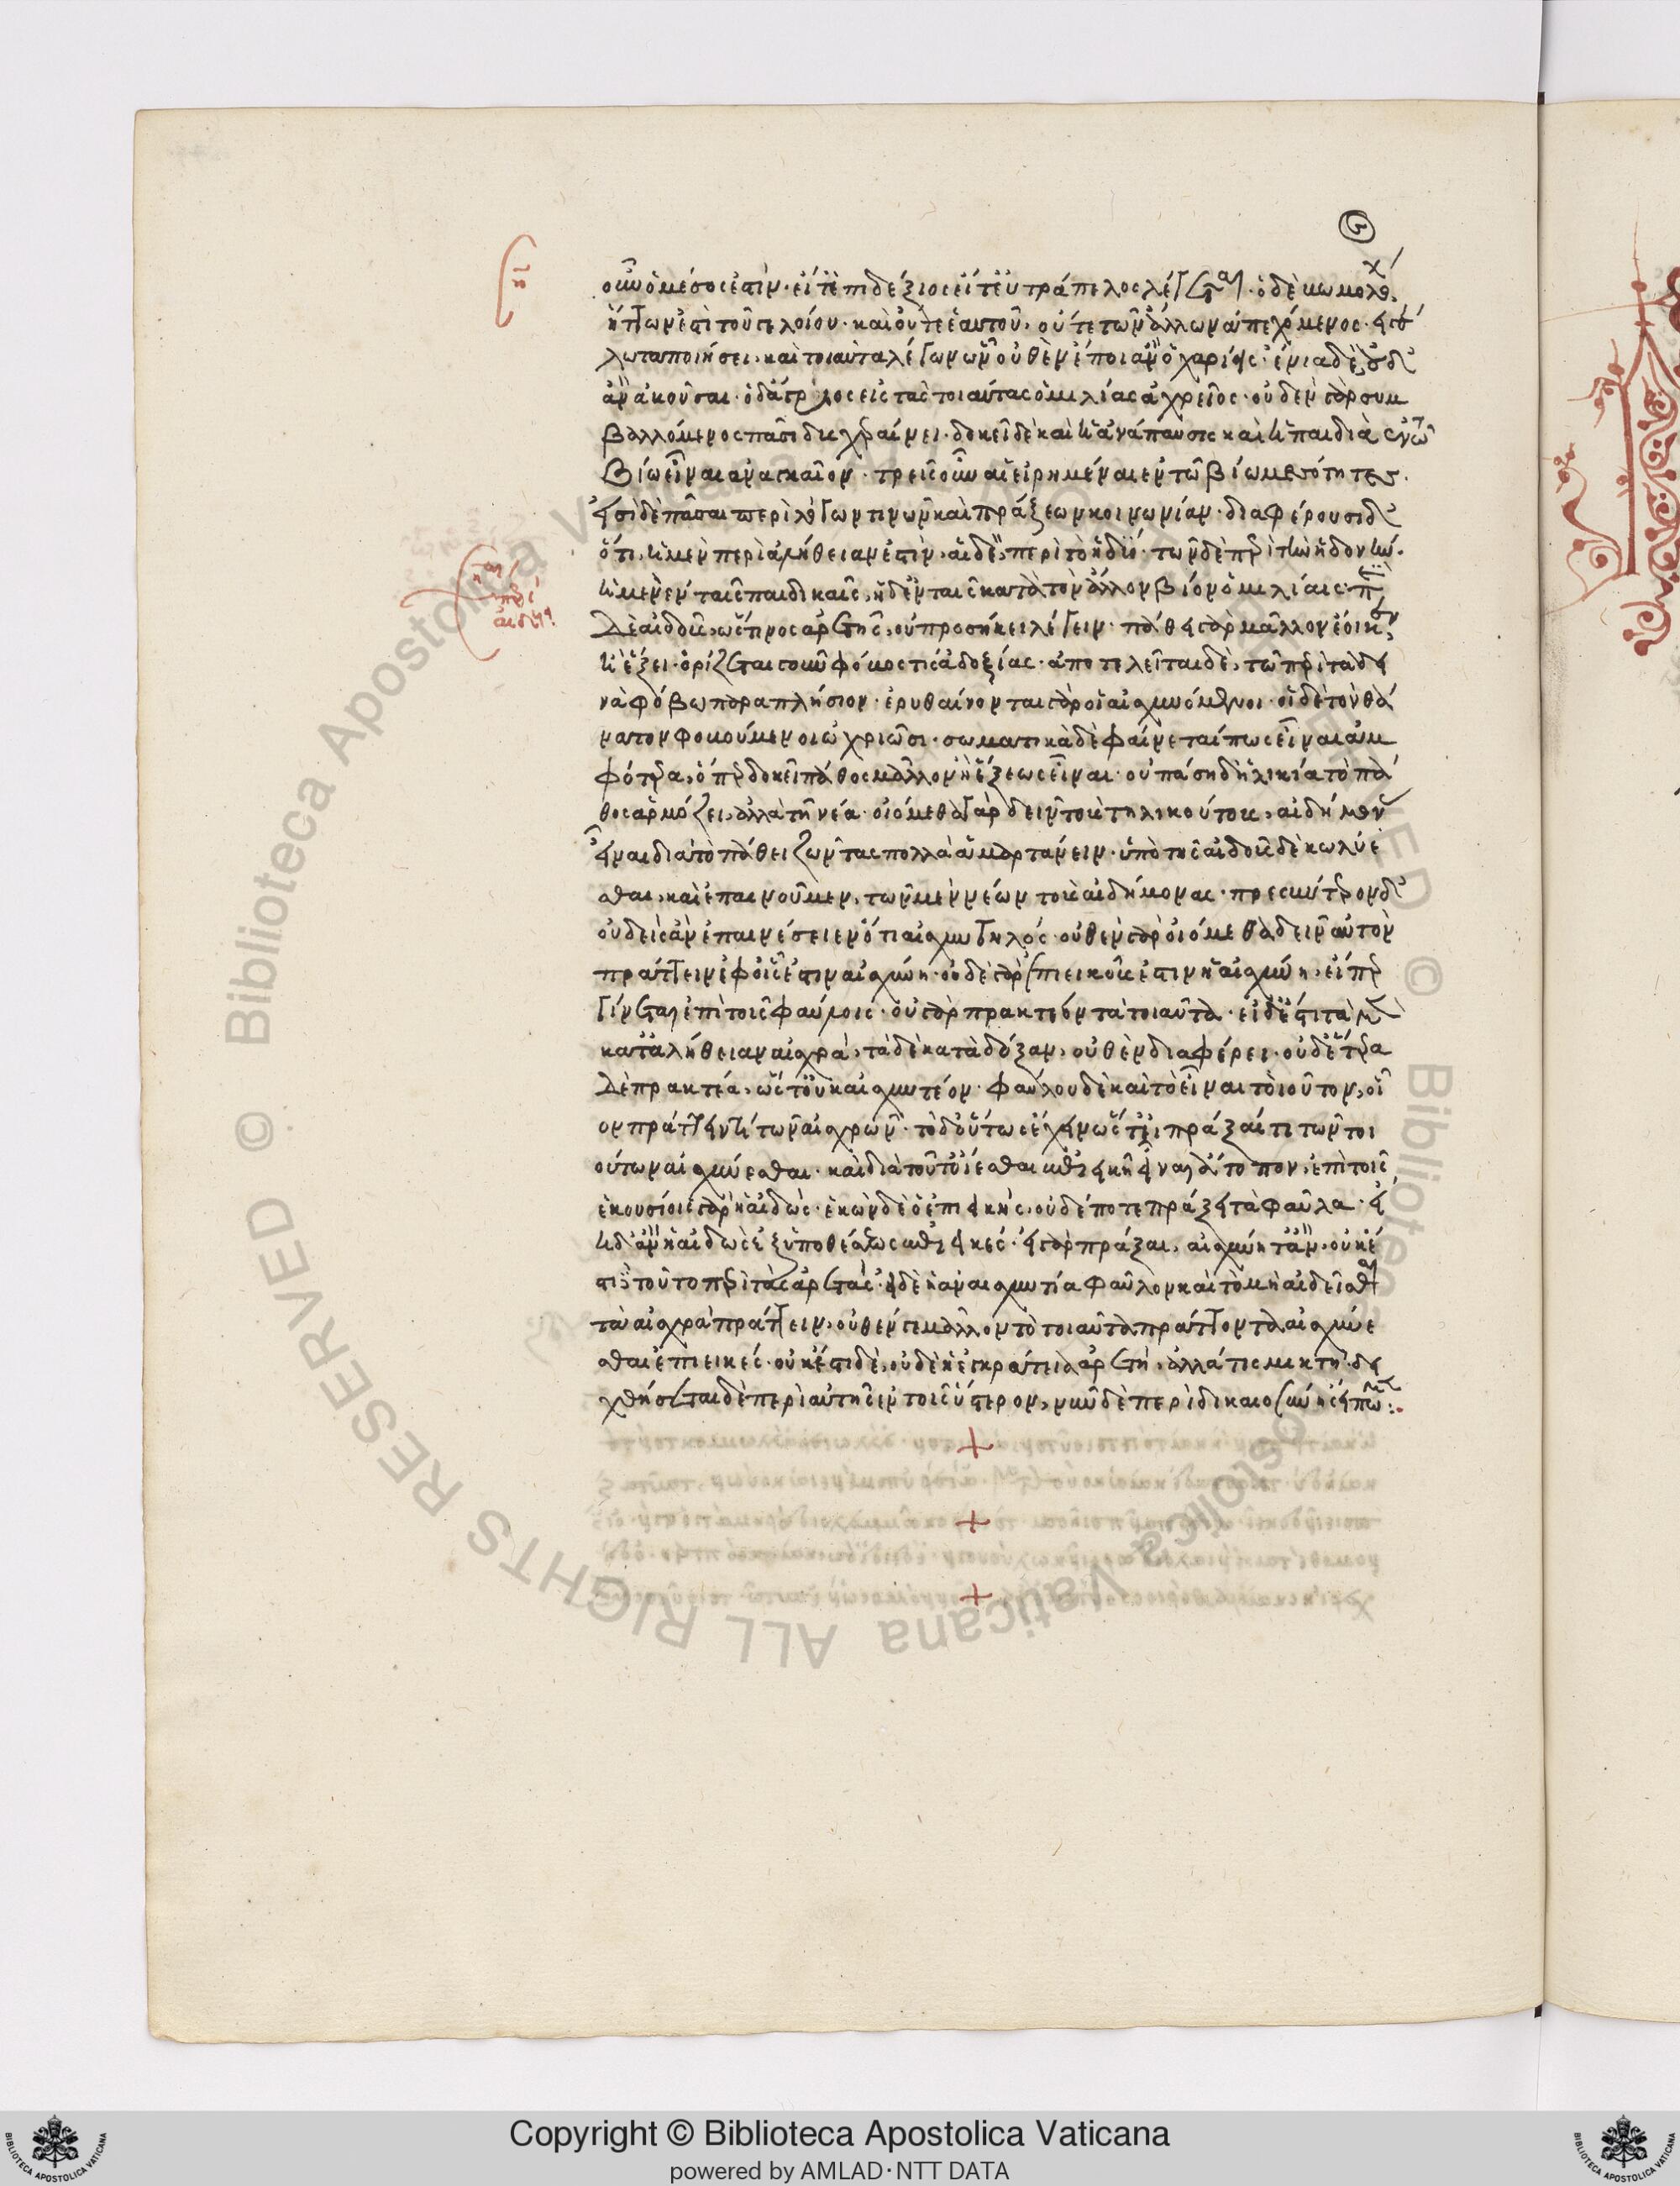 οὖν ὁ μέσος ἐστὶν. εἴτ' ἐπιδέξιος εἴτ' εὐτράπελος λέγεται. ὁ δὲ βωμολόχ
ἥττων ἐστὶ τοῦ γελοίου. καὶ οὔτε ἑαυτοῦ, οὔτε τῶν ἄλλων ἀπεχόμενος. εἰ γέ
λωτα ποιήσει, καὶ τοιαῦτα λέγων ὧν οὐθὲν εἴποι ἂν ὁ χαρίεις. ἔνια δὲ οὐδ'
ἂν ἀκοῦσαι. ὁ δ' ἄγροικος εἰς τὰς τοιαύτας ὁμιλίας ἀχρεῖος. οὐδὲν γὰρ συμ
βαλλόμενος πᾶσι δυσχεραίνει. δοκεῖ δὲ καὶ ἡ ἀνάπαυσις καὶ ἡ παιδιὰ ἐν τῶ
βίω εἶναι ἀναγκαῖον. τρεῖς οὖν αἱ εἰρημέναι ἐν τῶ βίω μεσότητες.
εἰσὶ δὲ πᾶσαι περὶ λόγων τινῶν καὶ πράξεων κοινωνίαν. διαφέρουσι δ'
ὅτι, ἡ μὲν περὶ ἀλήθειαν ἐστὶν, αἱ δὲ περὶ τὸ ἡδύ. τῶν δὲ περὶ τὴν ἡδονήν.
ἡ μὲν ἐν ταῖς παιδιαῖς, ἡ δ' ἐν ταῖς κατὰ τὸν ἄλλον βίον ὁμιλίαις. περὶ
δὲ αἰδοῦς, ὥς τινος ἀρετῆς, οὐ προσήκει λέγειν. πάθει γὰρ μᾶλλον ἔοικεν
ἢ ἕξει. ὁρίζεται γοῦν φόβος τις ἀδοξίας. ἀποτελεῖται δὲ, τῶ περὶ τὰ δει
νὰ φόβω παραπλήσιον. ἐρυθαίνονται γὰρ οἱ αἰσχυνόμενοι. οἱ δὲ τὸν θά
νατον φοβούμενοι ὠχριῶσι. σωματικὰ δὲ φαίνεται πως εἶναι ἀμ
φότερα, ὅπερ δοκεῖ πάθος μᾶλλον ἢ ἕξεως εἶναι. οὐ πάση δ' ἡλικία τὸ πά
θος ἁρμόζει, ἀλλὰ τῆ νέα. οἰόμεθα γὰρ δεῖν τοὺς τηλικούτους, αἰδήμονας
εἶναι διὰ τὸ πάθει ζῶντας πολλὰ ἁμαρτάνειν. ὑπὸ τῆς αἰδοῦς δὲ κωλύε
σθαι, καὶ ἐπαινοῦμεν, τῶν μὲν νέων τοὺς αἰδήμονας. πρεσβύτερον δ'
οὐδεὶς ἂν ἐπαινέσειεν ὅτι αἰσχυντηλός. οὐθὲν γὰρ οἰόμεθα δεῖν αὐτὸν
πράττειν ἐφ' οἷς ἐστιν αἰσχύνη. οὐδὲ γὰρ ἐπιεικοῦς ἐστιν ἡ αἰσχύνη, εἴπερ
γίνεται ἐπὶ τοῖς φαύλοις. οὐ γὰρ πρακτέον τὰ τοιαῦτα. εἰ δ' ἐστὶ τὰ μὲν
κατ' ἀλήθειαν αἰσχρὰ, τὰ δὲ κατὰ δόξαν, οὐθὲν διαφέρει. οὐδέτερα
δὲ πρακτέα, ὥστ' οὐκ αἰσχυντέον. φαύλου δὲ καὶ τὸ εἶναι τοιοῦτον, οἷ
ον πράττειν τι τῶν αἰσχρῶν. τὸ δ' οὕτως ἔχειν ὥστ' εἰ πράξαι τι τῶν τοι
ούτων αἰσχύνεσθαι. καὶ διὰ τοῦτ' οἴεσθαι ἐπιεικῆ εἶναι ἄτοπον. ἐπὶ τοῖς
ἑκουσίοις γὰρ ἡ αἰδώς. ἑκὼν δὲ ὁ ἐπιεικής, οὐδέποτε πράξει τὰ φαῦλα. εἴ
η δ' ἂν ἡ αἰδὼς ἐξ ὑποθέσεως ἐπιεικές. εἰ γὰρ πράξαι, αἰσχύνητ' ἂν. οὐκ ἔ
στι τοῦτο περὶ τὰς ἀρετάς. εἰ δ' ἡ ἀναισχυντία φαῦλον καὶ τὸ μὴ αἰδεῖσθαι
τὰ αἰσχρὰ πράττειν, οὐθέν τι μᾶλλον τὸ τοιαῦτα πράττοντα αἰσχύνε
σθαι ἐπιεικές. οὐκ ἔστι δὲ, οὐδ' ἡ ἐγκράτεια ἀρετὴ. ἀλλά τις μικτή. δει
χθήσεται δὲ περὶ αὐτῆς ἐν τοῖς ὕστερον, νῦν δὲ περὶ δικαιοσύνης εἴπωμεν:.
Copyright © Biblioteca Apostolica Vaticana
powered by AMLAD·NTT DATA
© Biblioteca Apostolica Vaticana ALL RIGHTS RESERVED